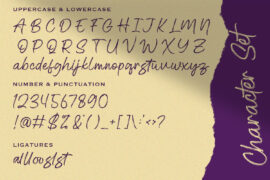 UPPERCASE & LOWERCASE
A B C D E F G H I J K L M N
O P Q R S T U V W X Y Z
abcdefghijklmnopqrstuvwxyz
NUMBER & PUNCTUATION
1234567890
!@#$&()_+[]\:<>?
LIGATURES
Character Set